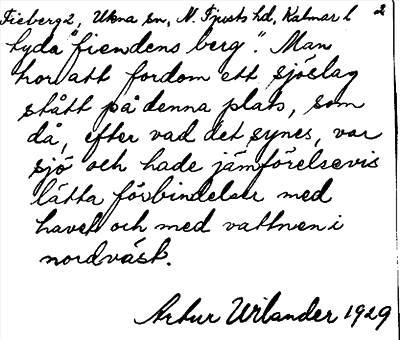 Fieberg 2, Ukna sn, N. Tjusts hd, Kalmar l 2
lyda "fiendens berg". Man
hor att fordom ett sjöslag
stått på denna plats, som
då, efter vad det synes, var
sjö och hade jämförelsevis
lätta förbindelser med
havet och med vattnen i
nordväst.
Artur Wilander 1929